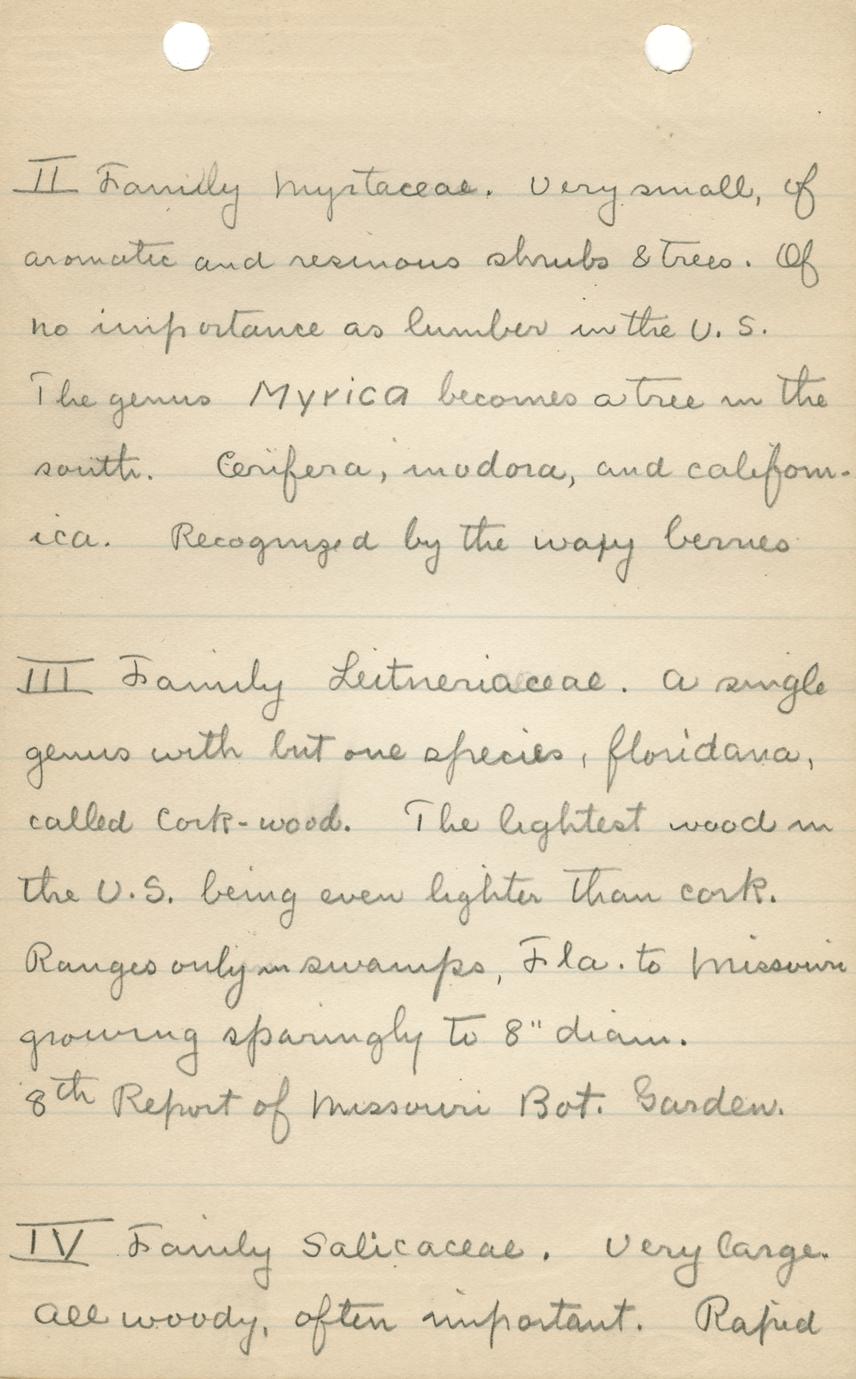 II Family Myrtaceae. Very small, of
aromatic and resinous shrubs & trees. Of
no importance as lumber in the U. S.
The genus Myrica becomes a tree in the
south. Cerifera, inodora, and californ-
ica. Recognized by the waxy berries
III Family Leitneriaceae. A single
genus with but one species, floridana,
called Cork-wood. The lightest wood in
the U.S. being even lighter than cork.
Ranges only in swamps, Fla. to Missouri
growing sparingly to 8" diam.
8th Report of Missouri Bot. Garden.
IV Family Salicaceae. Very large.
All woody, often important. Rapid